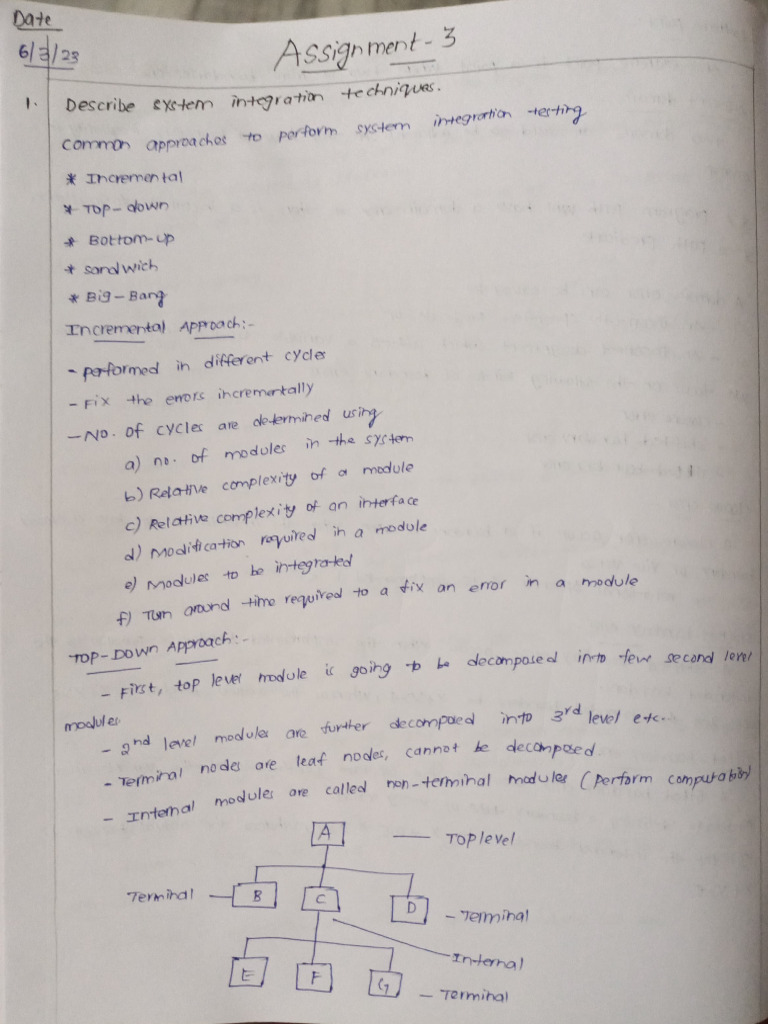 Date
6/3/23
Assignment-3
1. Describe system integration techniques.
common approaches to perform system integration testing
* Incremental
* Top-down
* Bottom-up
* sandwich
* Big-Bang
Incremental Approach:-
- performed in different cycles
- Fix the errors incrementally
- No. of cycles are determined using
a) no. of modules in the system
b) Relative complexity of a module
c) Relative complexity of an interface
d) Modification required in a module
e) Modules to be integrated
f) Turn around time required to a fix an error in a module
TOP-DOWN Approach:-
- First, top level module is going to be decomposed into few second level
modules.
- 2nd level modules are further decomposed into 3rd level etc..
- Terminal nodes are leaf nodes, cannot be decomposed.
- Internal modules are called non-terminal modules (perform computation)
A — Toplevel
Terminal — B C D - Terminal
Internal
E F G - Terminal